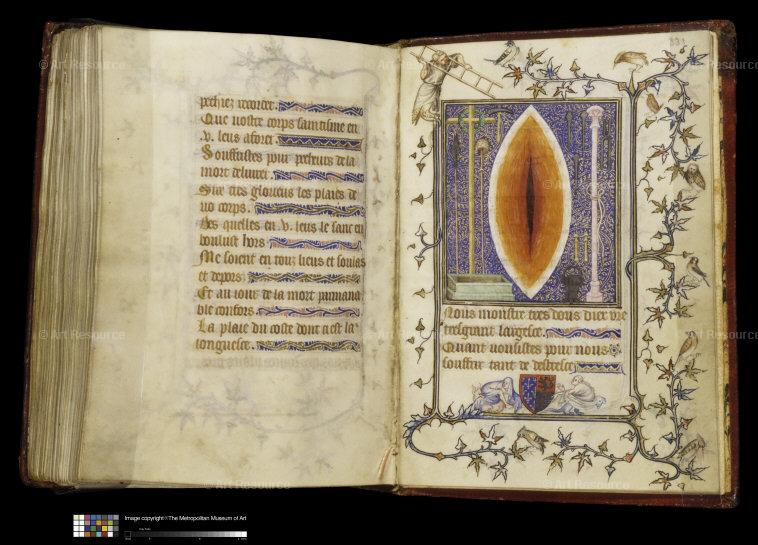 pechiez recorder.
Que vostre corps saintisme en
.v. leus aforer.
Souffristes pour pecheurs de la
mort delivrer.
Sire tres glorieus les plaies de
vo corps.
Des quelles en .v. leus le sanc en
boulust hors.
Me soient en touz lieus et soulas
et depors.
Et au jour de la mort
ble confors.
La plaie du coste dont cest la
longuesce.
Nous monstre tres dous dieu vre
tresgrant largesce.
Quant vousistes pour nous
souffrir tant de destresce
331
© Art Resource
Image copyright © The Metropolitan Museum of Art